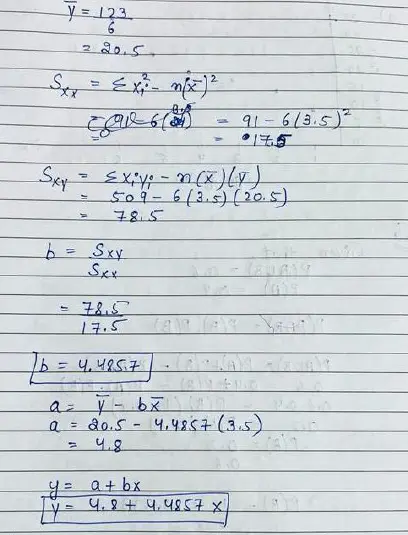 ȳ = 123/6
= 20.5
Sxx = Σxi² - n(x̄)²
= 91 - 6( ) = 91 - 6(3.5)²
= 17.5
Sxy = Σxiyi - n(x̄)(ȳ)
= 509 - 6(3.5)(20.5)
= 78.5
b = Sxy/Sxx
= 78.5/17.5
b = 4.4857
a = ȳ - bx̄
a = 20.5 - 4.4857(3.5)
= 4.8
y = a + bx
y = 4.8 + 4.4857 x